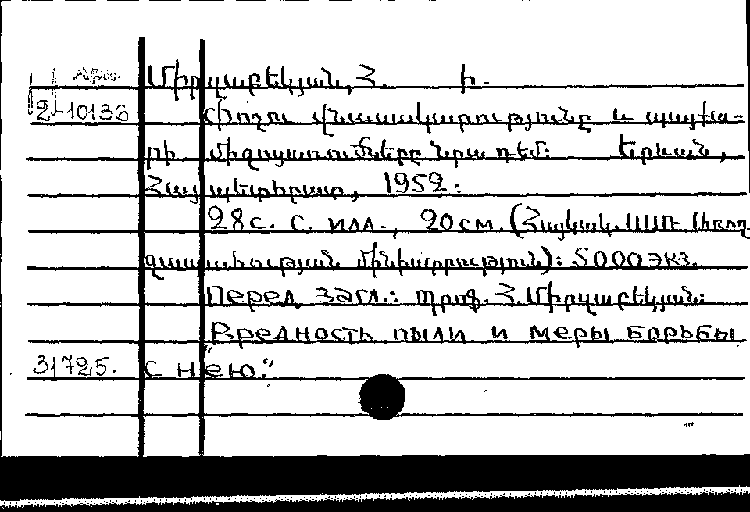 Միրզաբեկյան, Հ. Ի.
2-10133
Փոշու վնասակարությունը և պայքա-
րի միջոցառումները նրա դեմ: Երևան,
Հայպետհրատ, 1952:
28с. с. илл., 20см. (Հայկակ. ՍՍՌ Առող
ջապահության մինիստրություն): 5000 экз.
Перед загл.: պրոֆ. Հ. Միրզաբեկյան:
"Вредность пыли и меры борьбы
31725. с нею."